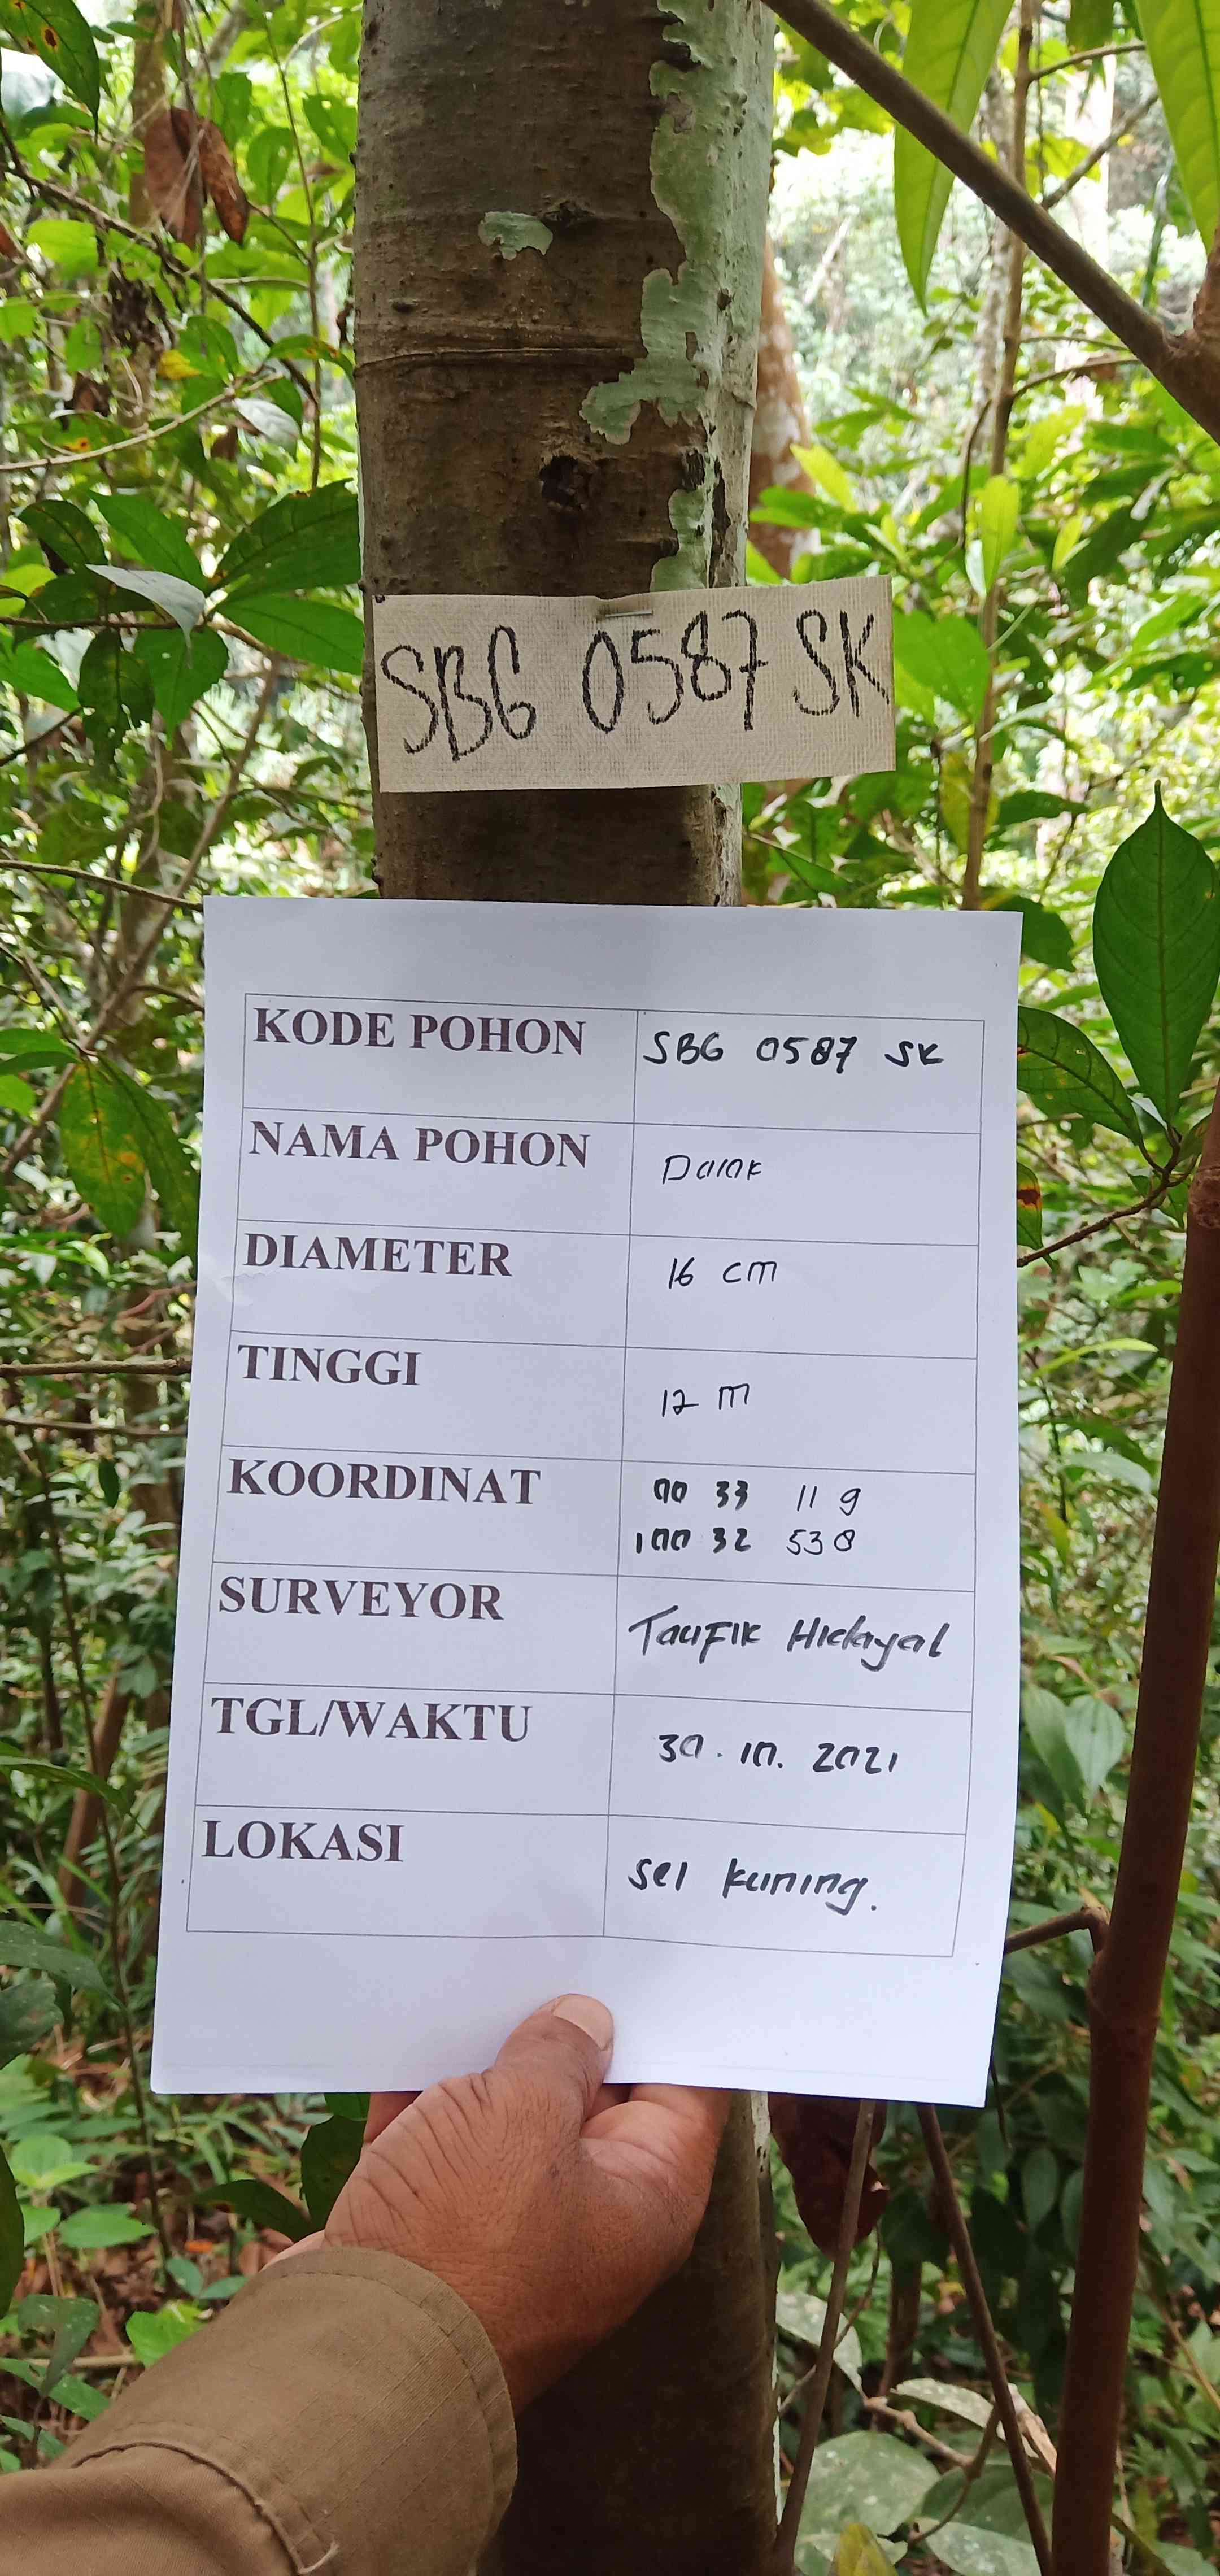 SBG 0587 SK
KODE POHON SBG 0587 SK
NAMA POHON Dalok
DIAMETER 16 cm
TINGGI 12 m
KOORDINAT 00 33 11 9
100 32 538
SURVEYOR Taufik Hidayat
TGL/WAKTU 30.10.2021
LOKASI sei kuning.